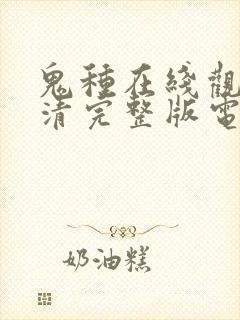 鬼種在綫觀
清完整版電
奶油糕